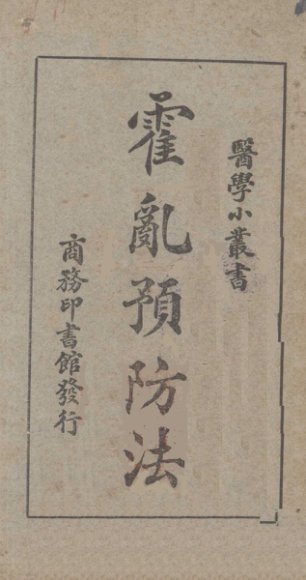 醫學小叢書
霍亂預防法
商務印書館發行